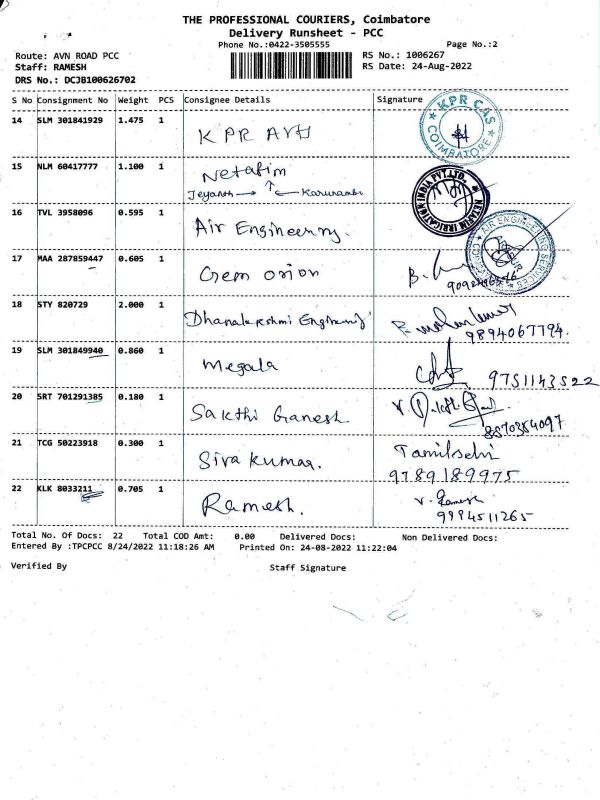 THE PROFESSIONAL COURIERS, Coimbatore
Delivery Runsheet - PCC
Phone No.:0422-3505555 Page No.:2
Route: AVN ROAD PCC RS No.: 1006267
Staff: RAMESH RS Date: 24-Aug-2022
DRS No.: DCJB100626702
S No Consignment No Weight PCS Consignee Details Signature
14 SLM 301841929 1.475 1 KPR AVH
KPR CAS COIMBATORE
15 NLM 60417777 1.100 1 Netafim
Jeyanth → ↑ ← Karunambi
NETAFIM IRRIGATION INDIA PVT.LTD.
16 TVL 3958096 0.595 1 Air Engineering.
AIR ENGINEERING SERVICES
17 MAA 287859447 0.605 1 Gem orion
18 STY 820729 2.000 1 Dhanalakshmi Engineering
9894067794.
19 SLM 301849940 0.860 1 Megala
9751143522
20 SRT 701291385 0.180 1 Sakthi Ganesh
8870354097
21 TCG 50223918 0.300 1 Siva kumar. Tamilselvi
9789189975
22 KLK 8033211 0.705 1 Ramesh. v. Ramesh
9994511265
Total No. Of Docs: 22 Total COD Amt: 0.00 Delivered Docs: Non Delivered Docs:
Entered By :TPCPCC 8/24/2022 11:18:26 AM Printed On: 24-08-2022 11:22:04
Verified By Staff Signature